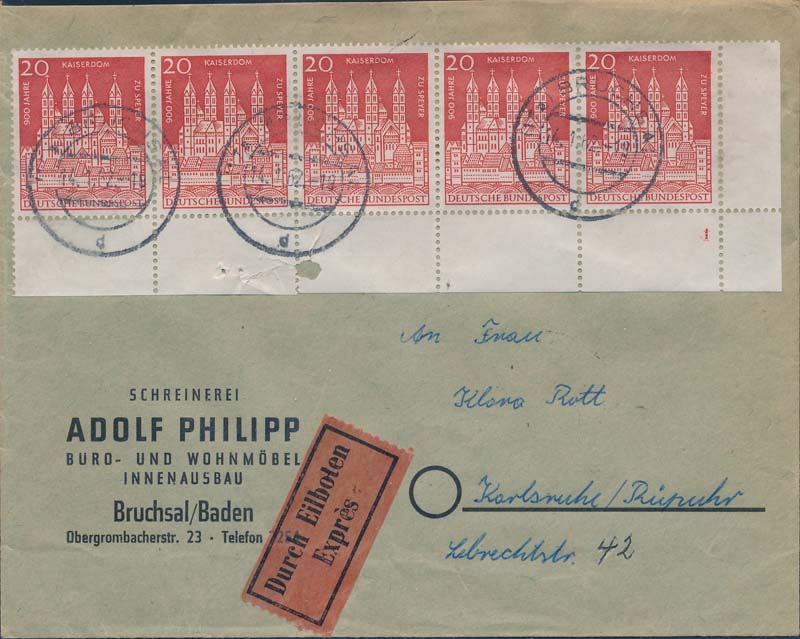 20 KAISERDOM
900 JAHRE
ZU SPEYER
DEUTSCHE BUNDESPOST
20 KAISERDOM
900 JAHRE
ZU SPEYER
DEUTSCHE BUNDESPOST
20 KAISERDOM
900 JAHRE
ZU SPEYER
DEUTSCHE BUNDESPOST
20 KAISERDOM
900 JAHRE
ZU SPEYER
DEUTSCHE BUNDESPOST
20 KAISERDOM
900 JAHRE
ZU SPEYER
DEUTSCHE BUNDESPOST
d
d
d
An Frau
Klara Rott
Karlsruhe/Rüpurr
Lebrechtstr. 42
SCHREINEREI
ADOLF PHILIPP
BÜRO- UND WOHNMÖBEL
INNENAUSBAU
Bruchsal/Baden
Obergrombacherstr. 23 · Telefon
Durch Eilboten
Exprès